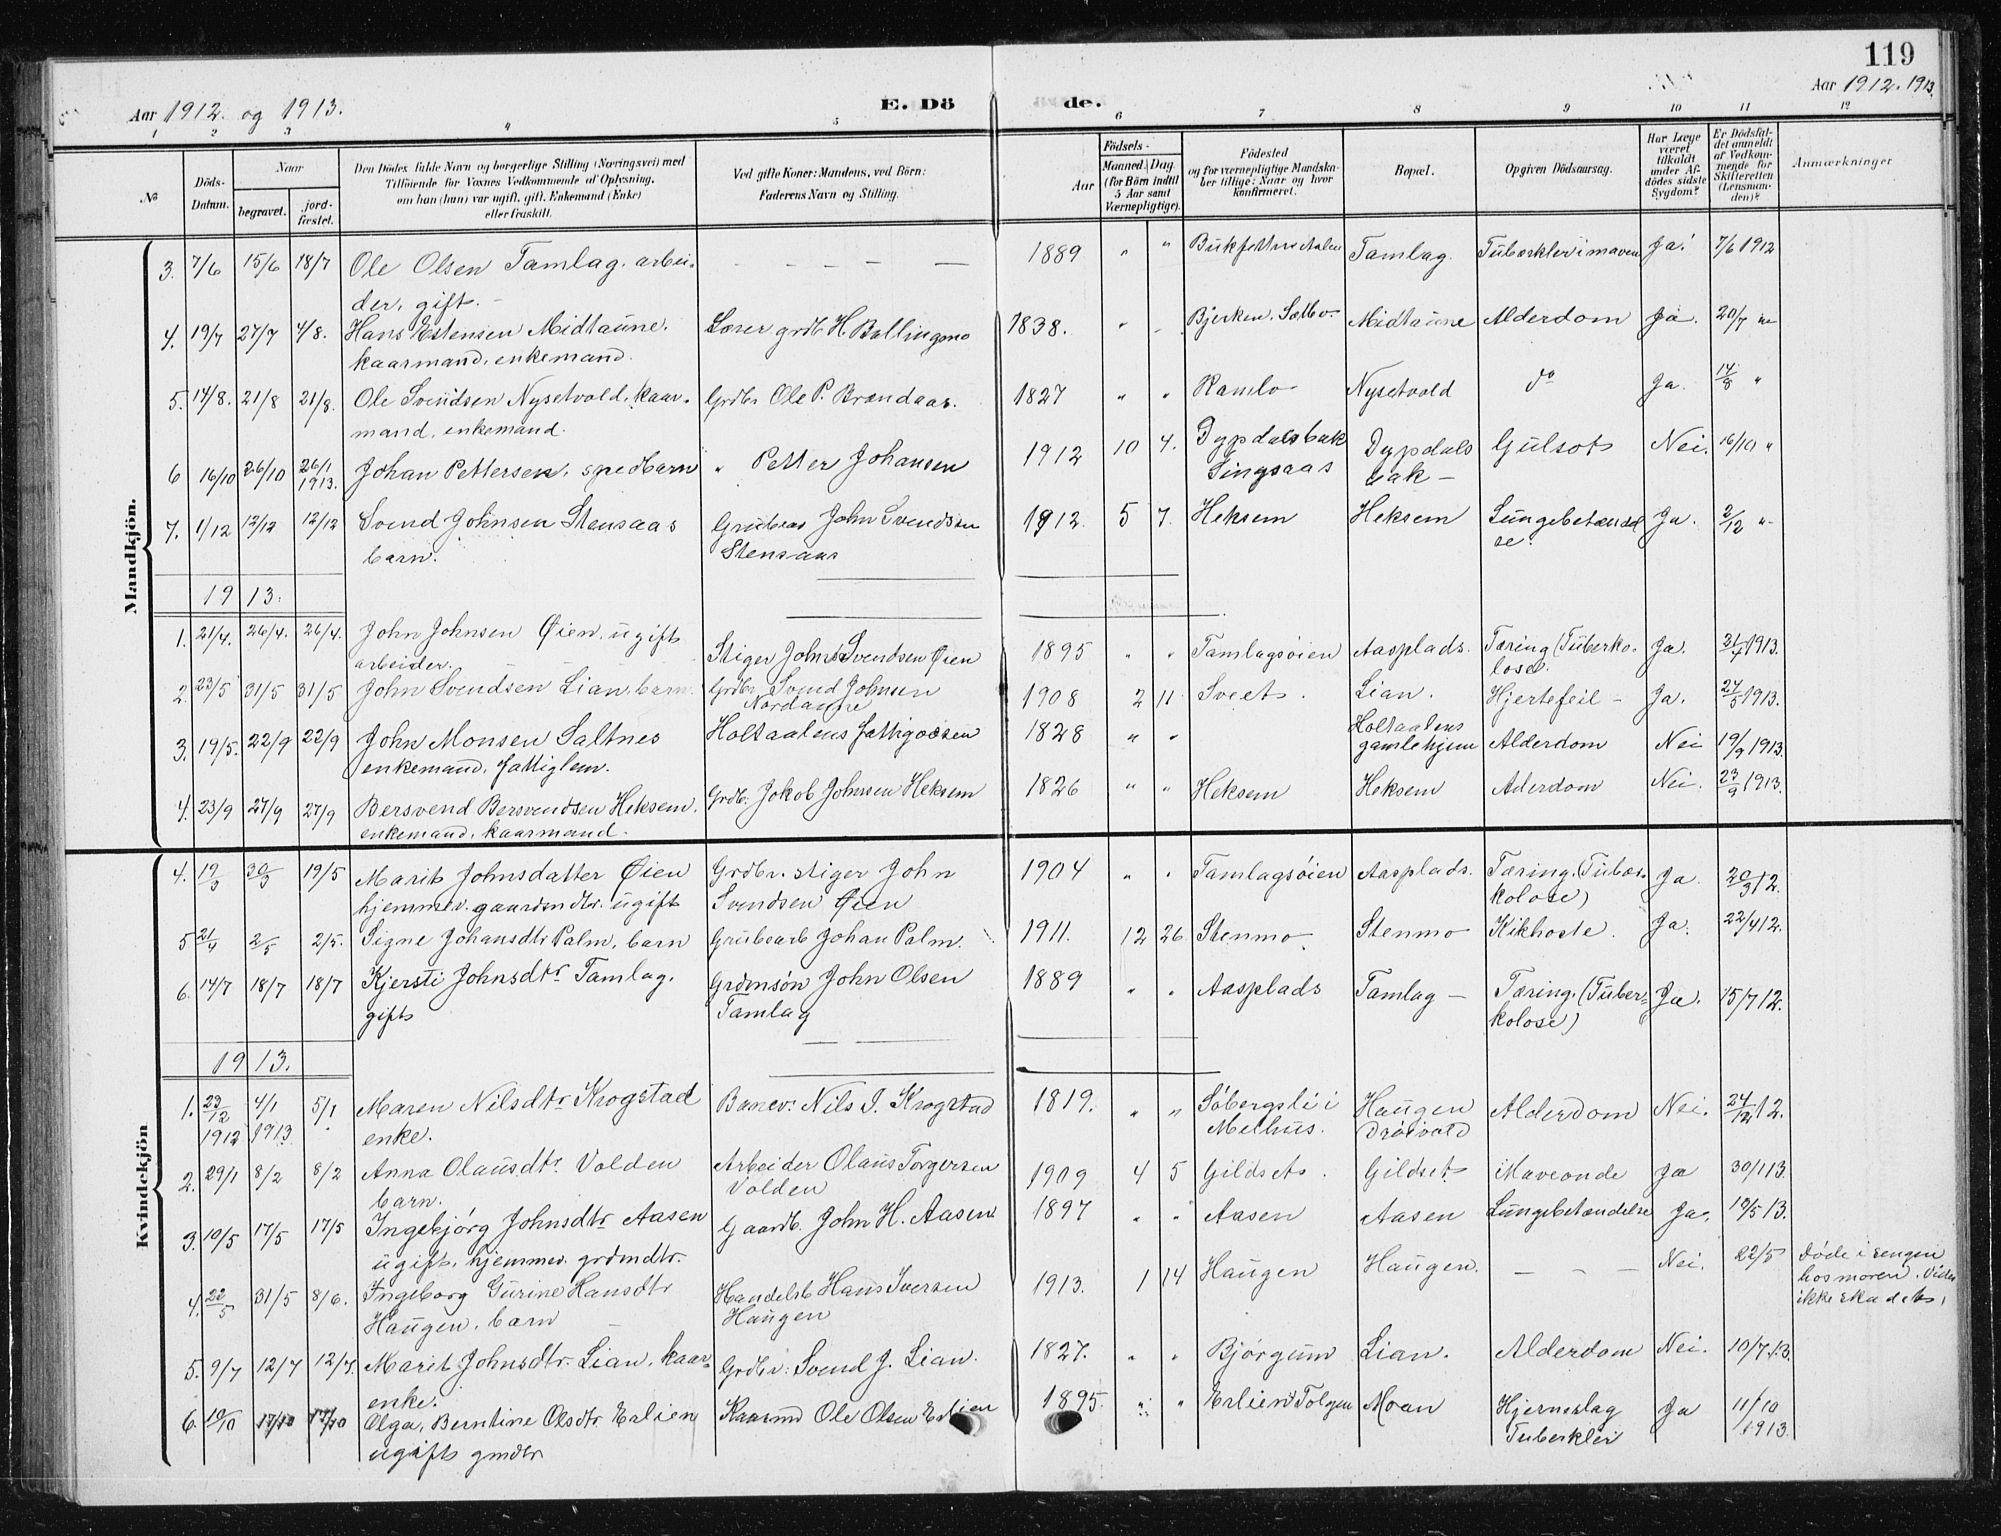 119
Aar 1912. og 1913.
E. Dö de.
Aar 1912. 1913.
1 2 3 4 5 6 7 8 9 10 11 12
№
Döds-Datum.
Naar
begravet.
jordfæstet.
Den Dödes fulde Navn og borgerlige Stilling (Næringsvei) med
Tilföiende for Voxnes Vedkommende af Oplysning,
om han (hun) var ugift, gift, Enkemand (Enke)
eller fraskilt.
Ved gifte Koner: Mandens, ved Börn:
Faderens Navn og Stilling.
Födsels-
Aar
Maaned. Dag
(for Börn indtil
5 Aar samt
Værnepligtige).
Födested
og for værnepligtige Mandska-
ber tillige: Naar og hvor
konfirmeret.
Bopæl.
Opgiven Dödsaarsag.
Har Læge
været
tilkaldt
under Af-
dödes sidste
Sygdom?
Er Dödsfal-
det anmeldt
af Vedkom-
mende for
Skifteretten
(Lensman-
den)?
Anmærkninger
Mandkjön.
3. 7/6 15/6 18/7 Ole Olsen Tamlag. arbei- – – – – 1889 " " Tamlag. Tuberkler i maven Ja! 7/6 1912
der, gift. –
4. 19/7 27/7 4/8. Hans Estensen Midtaune. Lærer grdb. H. Ballingmo 1838. " " Bjerken. Midtaune Alderdom Ja. 20/7
kaarmand, enkemand.
5. 14/8. 21/8 21/8. Ole Svendsen Nysetvold, kaar- Grdbr Ole P. Brændaas. 1827 " " Ramlo Nysetvold do Ja. 14/8 "
mand, enkemand.
6 16/10 26/10 26/1 1913. Johan Pettersen, spedbarn " Petter Johansen 1912 10 4. Dypdalsbak Dypdals Gulsot Nei. 16/10 "
Singsaas bak –
7. 1/12 12/12 12/12 Svend Johnsen Stensaas Grubearb John Svendsen 1912. 5 7. Heksem Heksem Lungebetænd Ja. 2/12 "
barn. Stensaas se.
1913.
1. 21/4. 26/4. 26/4. John Johnsen Øien, ugift Stiger John Svendsen Øien 1895 " " Tamlagsøien Aasplads. Tæring (Tuberko- Ja. 21/4 1913.
arbeider. lose).
2. 23/5 31/5 31/5 John Svendsen Lian, barn. Grdbr. Svend Johnsen 1908 2 11. Sveet. Lian. Hjertefeil – Ja. 24/5 1913.
Nordaune
3. 19/5. 22/9 22/9 John Monsen Saltnes Holtaalens fattigvæsen 1828 " " Holtaalens gamlehjem Alderdom Nei 19/9 1913.
enkemand, fattiglem.
4. 23/9 27/9 27/9 Bersvend Bersvendsen Heksem. Grdb. Jokob Johnsen Heksem 1826 " " Heksem Heksem Aderdom Nei. 23/9 1913.
enkemand, kaarmand.
Kvindekjön
4. 19/3 30/3 19/5 Marit Johnsdatter Øien Grdbr. stiger John 1904 " " Tamlagsøien Aasplads. Tæring. (Tuber- Ja. 20/3 12.
hjemmev. gaardmdtr. ugift Svendsen Øien kolose)
5 21/4 2/5 2/5. Signe Johansdtr Palm, barn Grubearb Johan Palm. 1911. 12 26 Stenmo. Stenmo Kikhoste. Ja. 22/4 12.
6. 14/7 18/7 18/7 Kjersti Johnsdtr Tamlag. Grdmsøn John Olsen 1889 " " Aasplads Tamlag – Tæring. (Tuber- Ja. 15/7 12.
gift Tamlag kolose)
1913.
1. 23/12 1912 4/1 1913. 5/1 Maren Nilsdtr Krogstad Banev: Nils J. Krogstad 1819. " " Søbergsli i Haugen Alderdom Nei. 24/12 12.
enke. Melhus. Drøivold
2. 29/1 8/2 8/2 Anna Olausdtr Volden Arbeider Olaus Torgersen 1909 4 5 Gildset. Gildset Maveonde Ja 30/1 13.
barn. Volden
3. 10/5 17/5 17/5 Ingebjørg Johnsdtr Aasen Gaardb. John H. Aasen 1897 " " Aasen Aasen Lungebetændelse Ja. 10/5 13.
ugift, hjemmev. grdmdtr.
4. 22/5 31/5 8/6. Ingeborg Gurine Hansdtr Handelsb Hans Iversen 1913. 1 14 Haugen Haugen. – – – Nei. 22/5 Døde i sengen
Haugen. barn Haugen hos moren. Vides
ikke skadets.
5. 9/7 12/7 12/7. Marit Johnsdtr. Lian, kaar- Grdbr: Svend J. Lian. 1827. " " Bjørgum Lian. Alderdom Nei. 10/7 13.
enke.
6. 10/10 17/10 17/10 Olga, Berntine Olsdtr Erlien Kaarmd Ole Olsen Erlien 1895. " " Erlien Tolgen Moan Hjerneslag Ja 11/10
ugift gmdtr Tuberkler 1913.